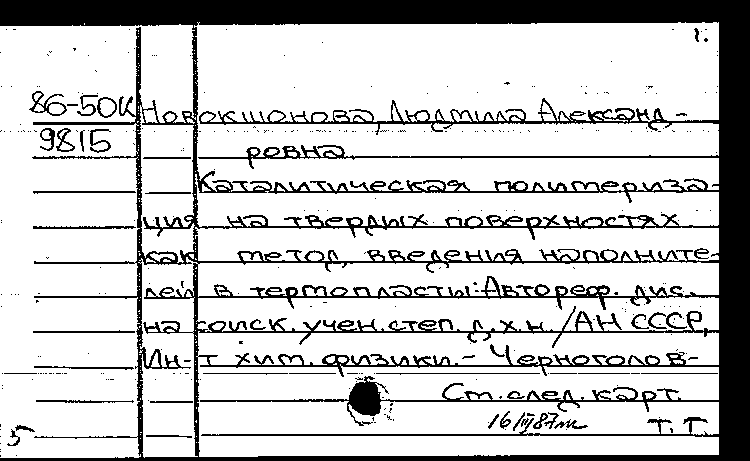 1.
86-50К Новокшонова, Людмила Александ-
9815
ровна.
Каталитическая полимериза-
ция на твердых поверхностях
как метод введения наполните-
лей в термопласты: Автореф. дис.
на соиск. учен. степ. д.х.н. /АН СССР,
Ин-т хим. физики.- Черноголов-
См. след. карт.
16/III87м
5
Т. Т.